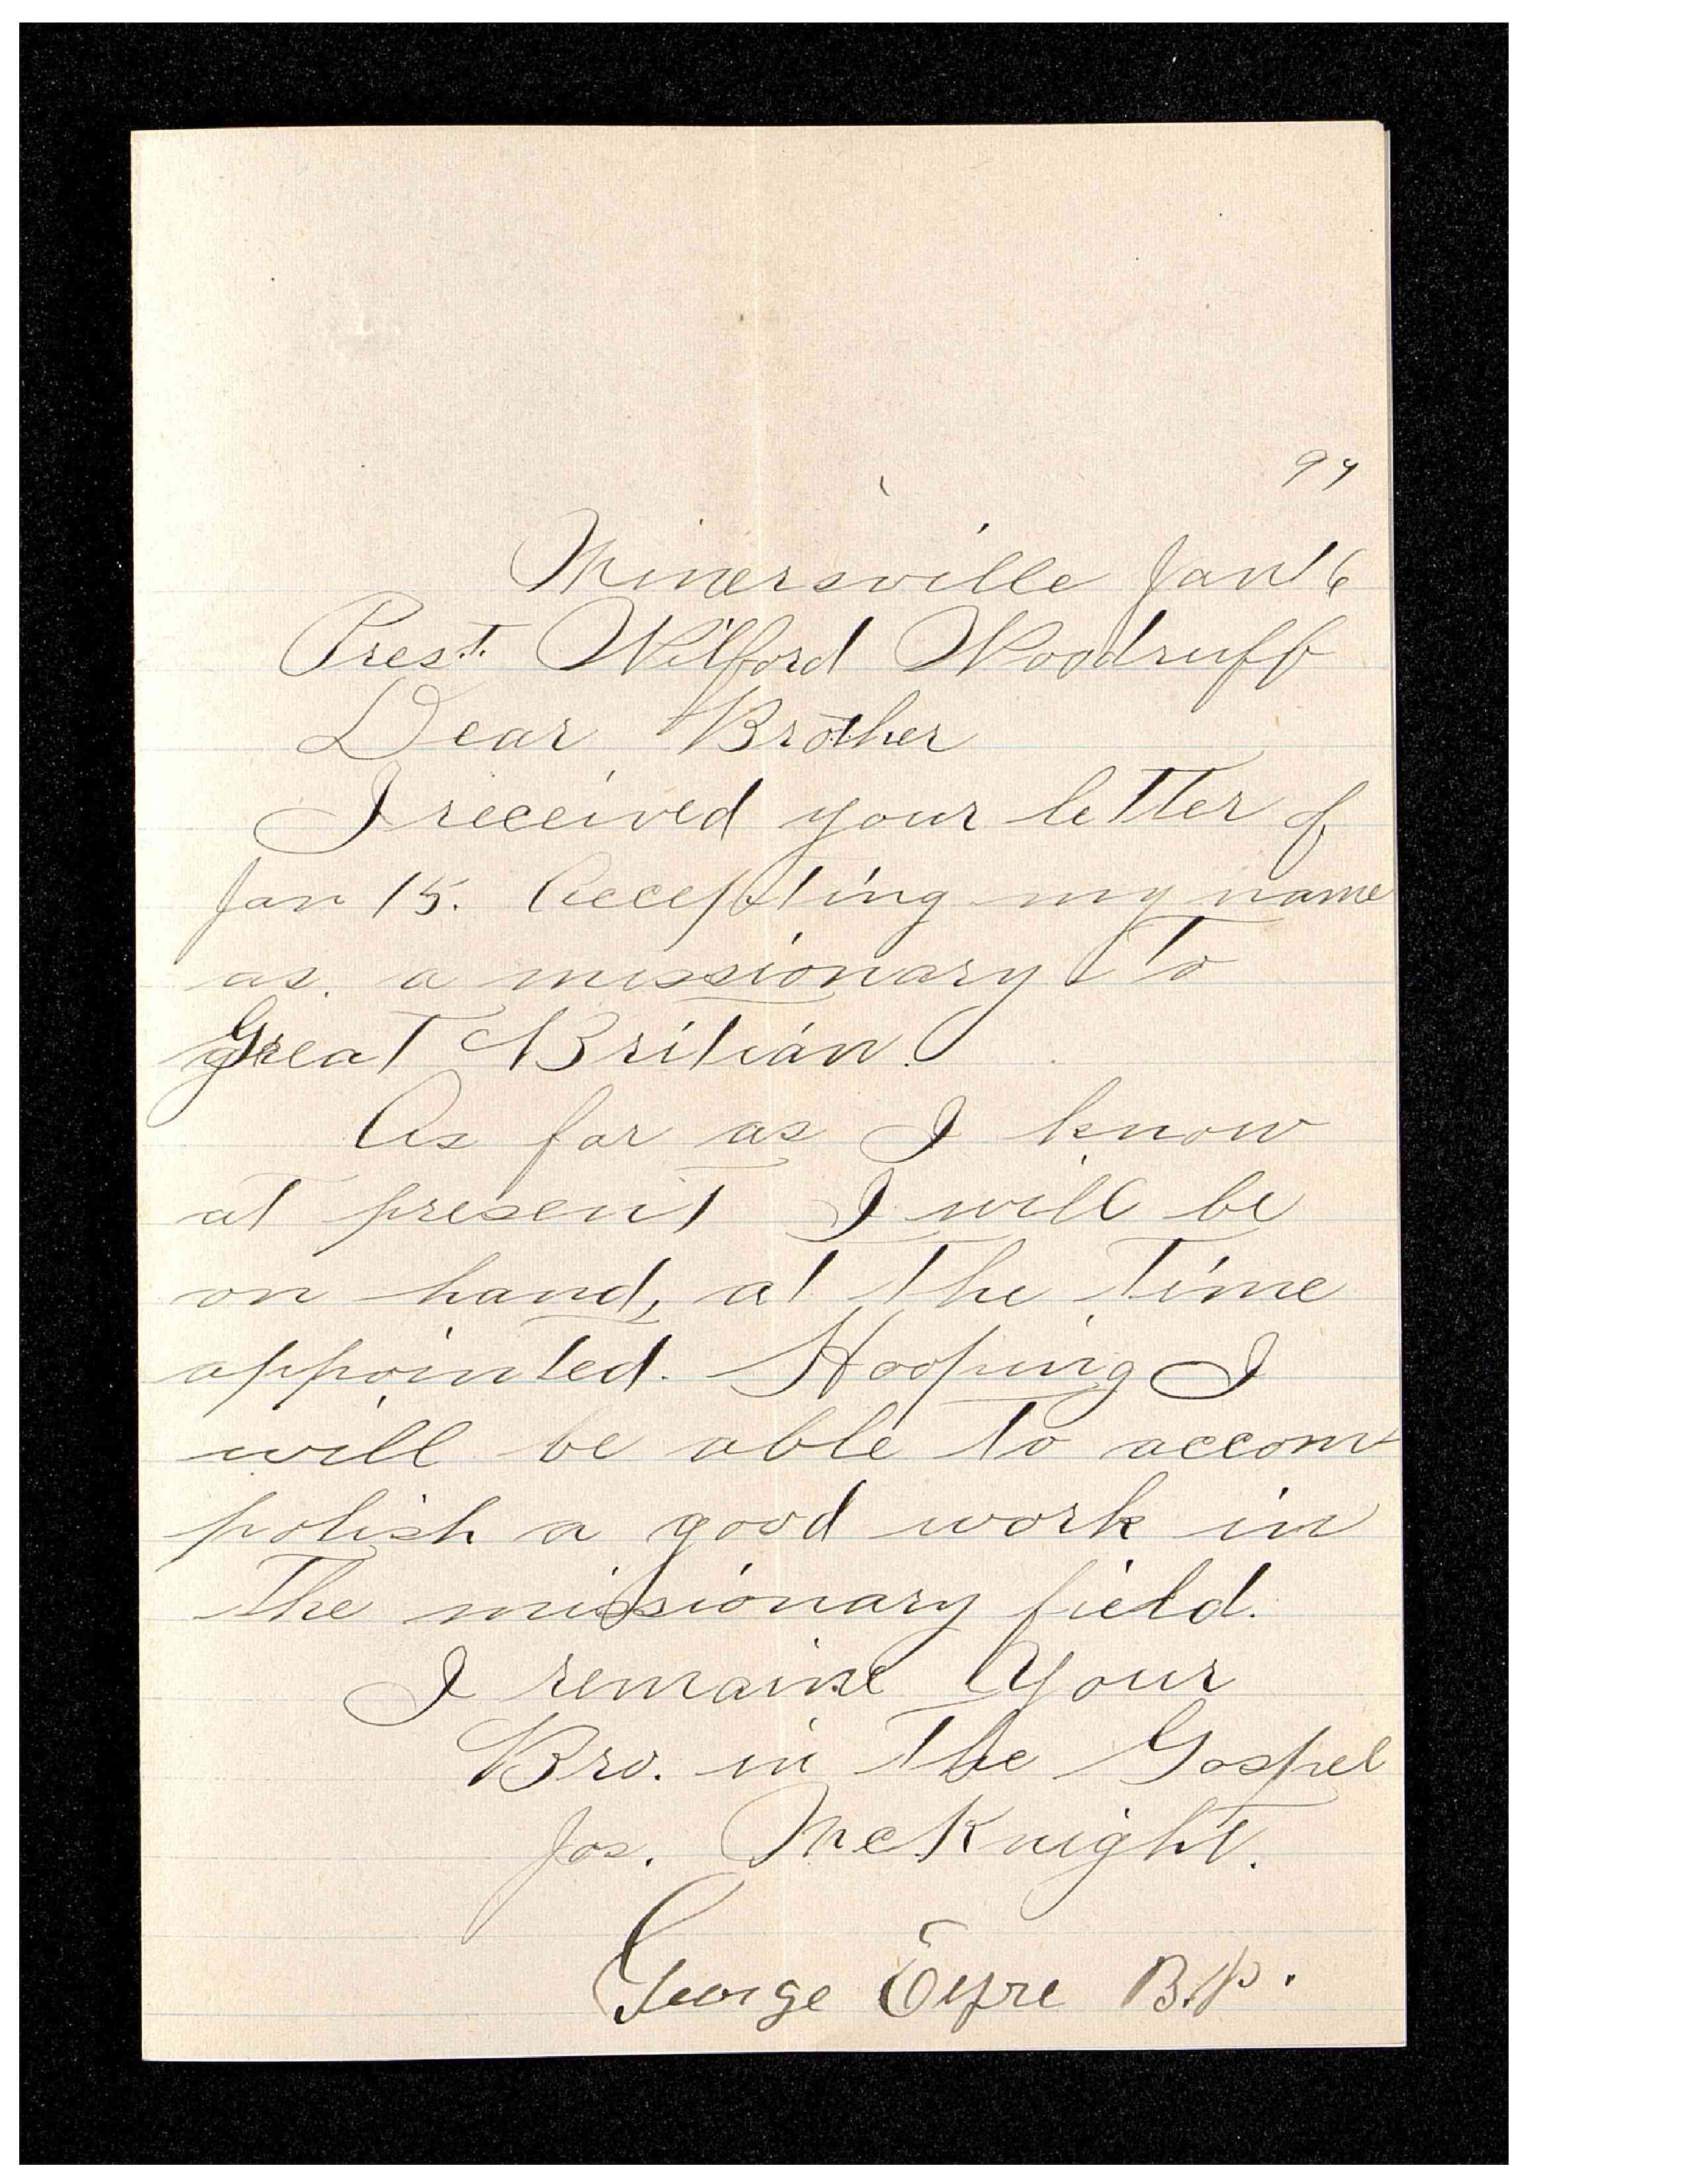 97
Minersville Jan 16
Prest. Wilford Woodruff
Dear Brother
I received your letter of
Jan 15. Accepting my name
as. a missionary to
Great Britian.
As far as I know
at present I will be
on hand, at the time
appointed. Hooping I
will be able to accom
polish a good work in
the missionary field.
I remaine Your
Bro. in the Gospel
Jos. McKnight.
George Eyre B.P.